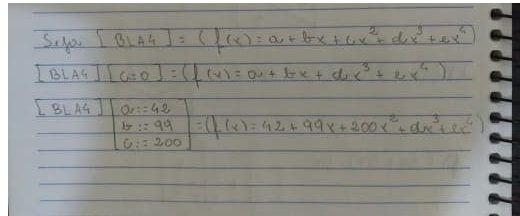 Seja [BLA4] = (f(x) = a + bx + cx² + dx³ + ex⁴)
[BLA4][c=0] = (f(x) = a + bx + dx³ + ex⁴)
[BLA4] [a::=42
b::=99
c::=200] = (f(x) = 42 + 99x + 200x² + dx³ + ex⁴)